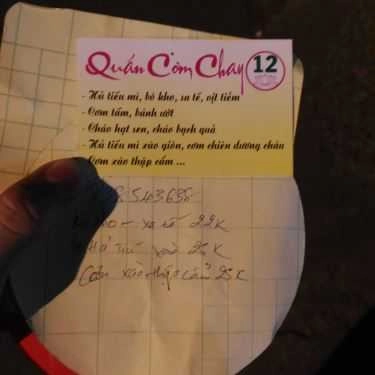 Quán Cơm Chay 12
- Hủ tiếu mì, bò kho, sa tế, vịt tiềm
- Cơm tấm, bánh ướt
- Cháo hạt sen, cháo bạch quả
- Hủ tiếu mì xào giòn, cơm chiên dương châu
- Cơm xào thập cẩm ...
22K
25K
xào thập cẩm 25K